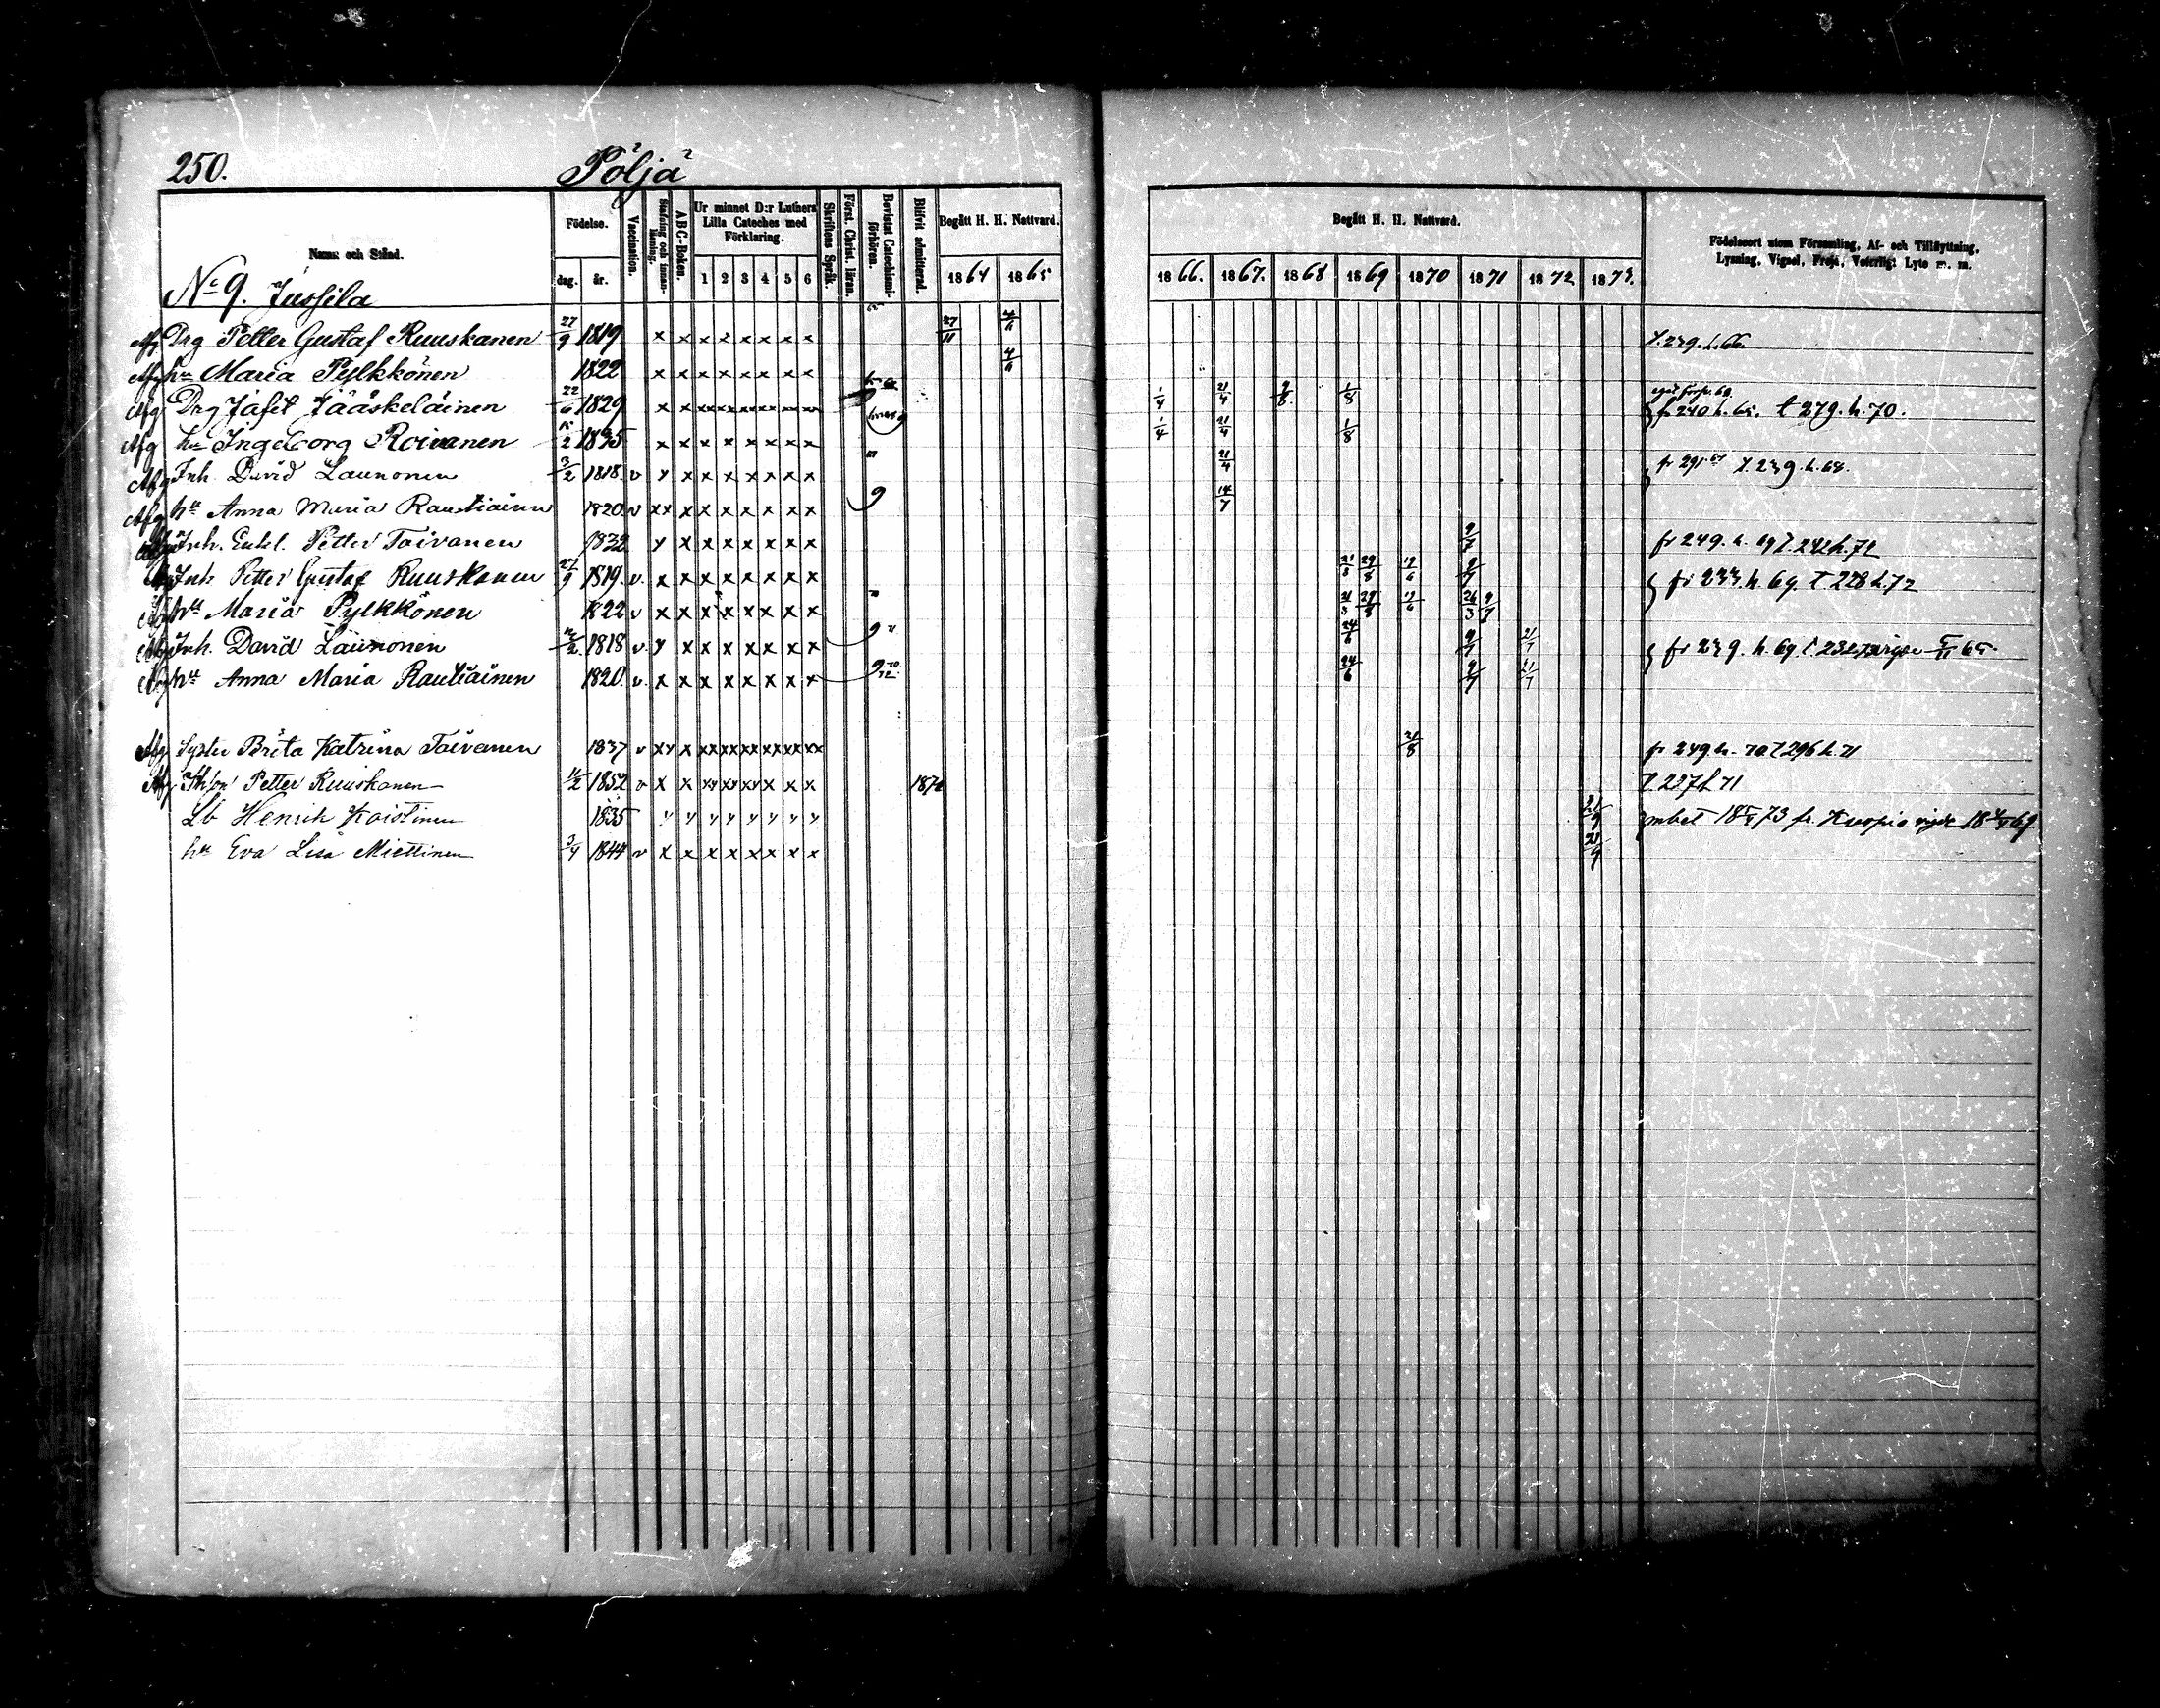 250. Pöljä
Namn och Stånd.
Födelse.
dag. år.
Vaccination.
Stafning och innanläsning.
ABC-Boken.
Ur minnet D:r Luthers Lilla Cateches med Förklaring.
1 2 3 4 5 6
Skriftens Språk.
Först. Christ. läran.
Bevistat Catechismiförhören.
Blifvit admitterad.
Begått H. H. Nattvard.
1864 1865
Begått H. H. Nattvard.
1866. 1867. 1868 1869 1870 1871 1872 1873.
Födelseort utom Församling, Af- och Tillflyttning,
Lysning, Vigsel, Frejd, Veterligt Lyte m. m.
No 9. Jussila
Afg Drg Petter Gustaf Ruuskanen 27/9 1819 x x x x x x x x 27/11 4/6 t. 239. h. 66.
Afg hu Maria Pylkkönen 1822 x x x x x x x x 4/6
Afg Drg Jafet Jääskeläinen 22/6 1829 1/4 21/4 1/8 fr 240 h. 65. t 279. h. 70.
Afg hu Ingeborg Roivanen 15/2 1835 x x x x x x x x 1/4 21/4 1/8
Afg Inh. David Launonen 3/2 1818. v y x x x x x x x 21/4 fr 291 67 t. 239. h. 68.
Afg hu Anna Maria Rautiäinen 1820. v xx x x x x x x x 9 14/7
Inh. Enkl. Petter Toivanen 1832 y x x x x x x x 9/7 fr 249. h. 69 t. 242 h. 72
Inh Petter Gustaf Ruuskanen 27/9 1819. v. x x x x x x x x 21/3 29/8 12/6 9/7 fr 233 h. 69. t 228 h. 72
hu Maria Pylkkönen 1822 v x x x x x x x x 21/3 29/8 12/6 26/3 9/7
Inh. David Launonen 1818 v. y x x x x x x x 24/6 9/7 21/7 fr 239. h. 69 t 232
hu Anna Maria Rautiäinen 1820. v. x x x x x x x x 24/6 9/7 21/7
Afg Syster Brita Katrina Toivanen 1837 v 21/8 fr 249 h. 70 t 296 h. 71
Afg Petter Ruuskanen 11/2 1852 v x x 1870 t. 237 h 71
Lb Henrik Koistinen 1835 y y y y y y y y 21/9 73 fr. Kuopio 69
hu Eva Lisa Miettinen 3/4 1844 v x x x x x x x x 21/9